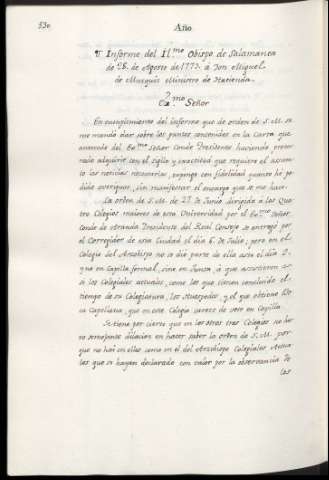 530
Año
Informe del Il.mo Obispo de Salamanca
de 28. de Agosto de 1772. á Don Miguel
de Muzquiz Ministro de Hacienda.
Señor
En cumplimiento del informe que de orden de S. M. se
me manda dar sobre los puntos contenidos en la Carta que
del Ex.mo Señor Conde Presidente haciendo
adquirir con el sigilo y exactitud que requiere el asun-
to las noticias necesarias, expongo con fidelidad quanto hé po-
dido averiguar, sin manifestar el encargo que se me hace.
La orden de S. M. de 27. de Junio dirigida á los Qua-
tro Colegios maiores de esta Universidad por el Ex.mo Señor
Conde de Aranda Presidente del Real Consejo se entregó por
el Corregidor de esta Ciudad el dia 6. de Julio; pero en el
Colegio del Arzobispo no se dió parte de ella asta el dia
y no en Capilla formal, sino en Junta, á que asistieron
los Colegiales actuales, como los que tienen concluido el
tiempo de su Colegiatura, los Huespedes, y el que obtiene
Capellania, que en este Colegio carece de voto en Capilla.
Se tiene por cierto que en los otros tres Colegios no hu-
vo semejante dilacion en hacer saber la orden de S. M. por
que no hai en ellos como en el del Arzobispo Colegiales Actua-
les que se hayan declarado con calor por la observancia de
las